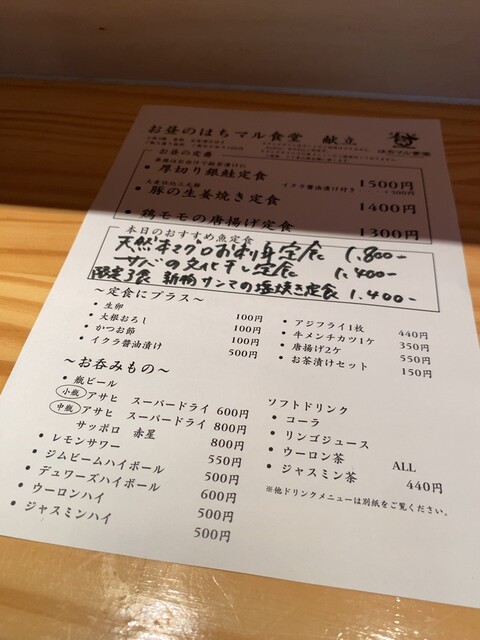 お昼のはちマル食堂　献立
はちマル食堂
お昼の定番
厚切り銀鮭定食 1500円
イクラ醤油漬け付き +500円
豚の生姜焼き定食 1400円
鶏モモの唐揚げ定食 1300円
本日のおすすめ魚定食
天然本マグロお刺身定食 1.800-
サバの文化干し定食 1.400-
限定3食 新物サンマの塩焼き定食 1.400-
～定食にプラス～
生卵 100円
大根おろし 100円
かつお節 100円
イクラ醤油漬け 500円
アジフライ1枚 440円
牛メンチカツ1ケ 350円
唐揚げ2ケ 550円
お茶漬けセット 150円
～お呑みもの～
瓶ビール
小瓶 アサヒ　スーパードライ 600円
中瓶 アサヒ　スーパードライ 800円
サッポロ　赤星 800円
レモンサワー 550円
ジムビームハイボール 500円
デュワーズハイボール 600円
ウーロンハイ 500円
ジャスミンハイ 500円
ソフトドリンク
コーラ
リンゴジュース
ウーロン茶
ジャスミン茶
ALL 440円
※他ドリンクメニューは別紙をご覧ください。